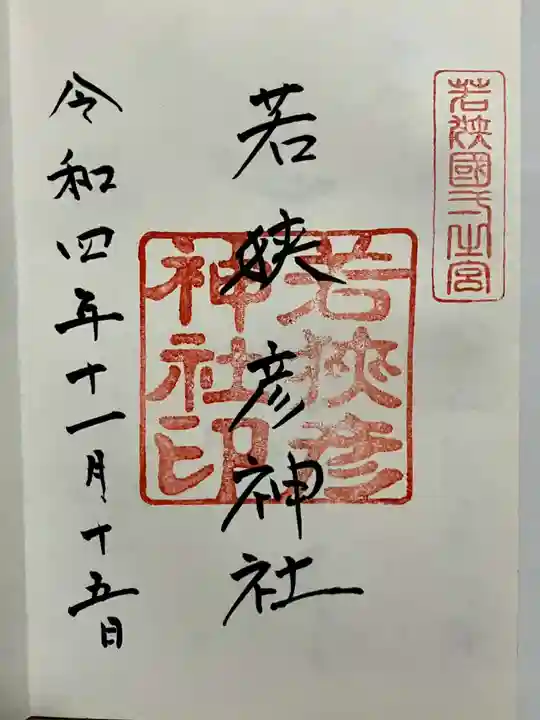 若狭國一之宮
若狭彦神社
若狭彦
神社印
令和四年十一月十五日